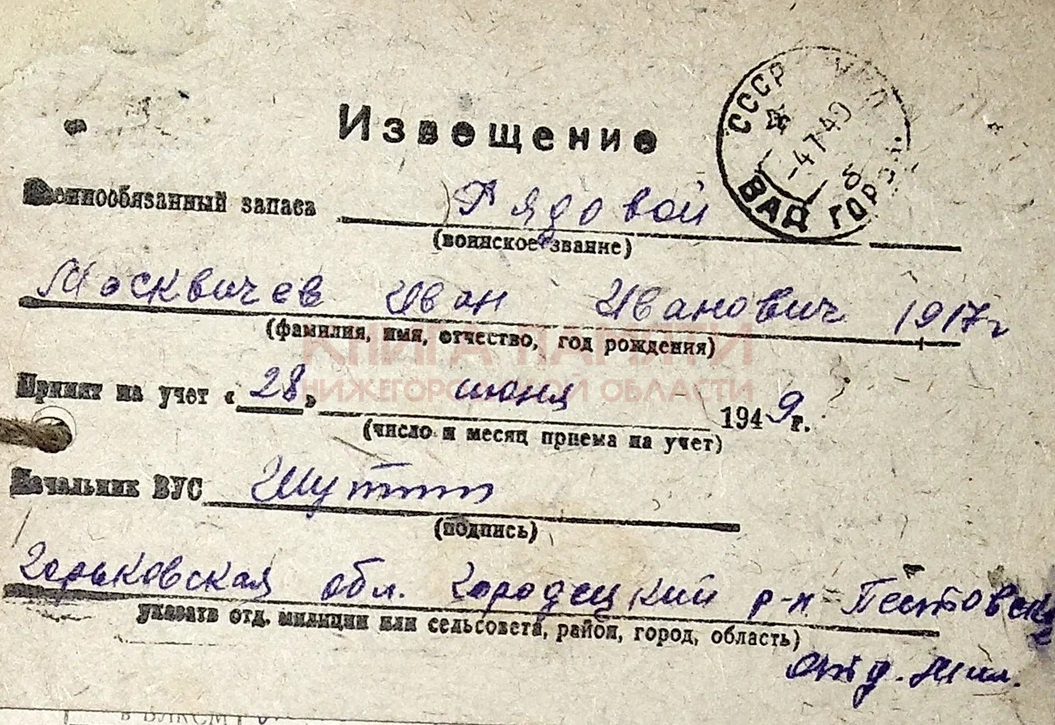 СССР
-4 7 49
ВАД ГОРЬК.
Извещение
Военнообязанный запаса Рядовой
(воинское звание)
Москвичев Иван Иванович 1917г
(фамилия, имя, отчество, год рождения)
КНИГА ПАМЯТИ
НИЖЕГОРОДСКОЙ ОБЛАСТИ
Принят на учет «28» июня 1949г.
(число и месяц приема на учет)
Начальник ВУС
(подпись)
Горьковская обл. Городецкий р-н Пестовск
указать отд. милиции или сельсовета, район, город, область)
отд. мил.